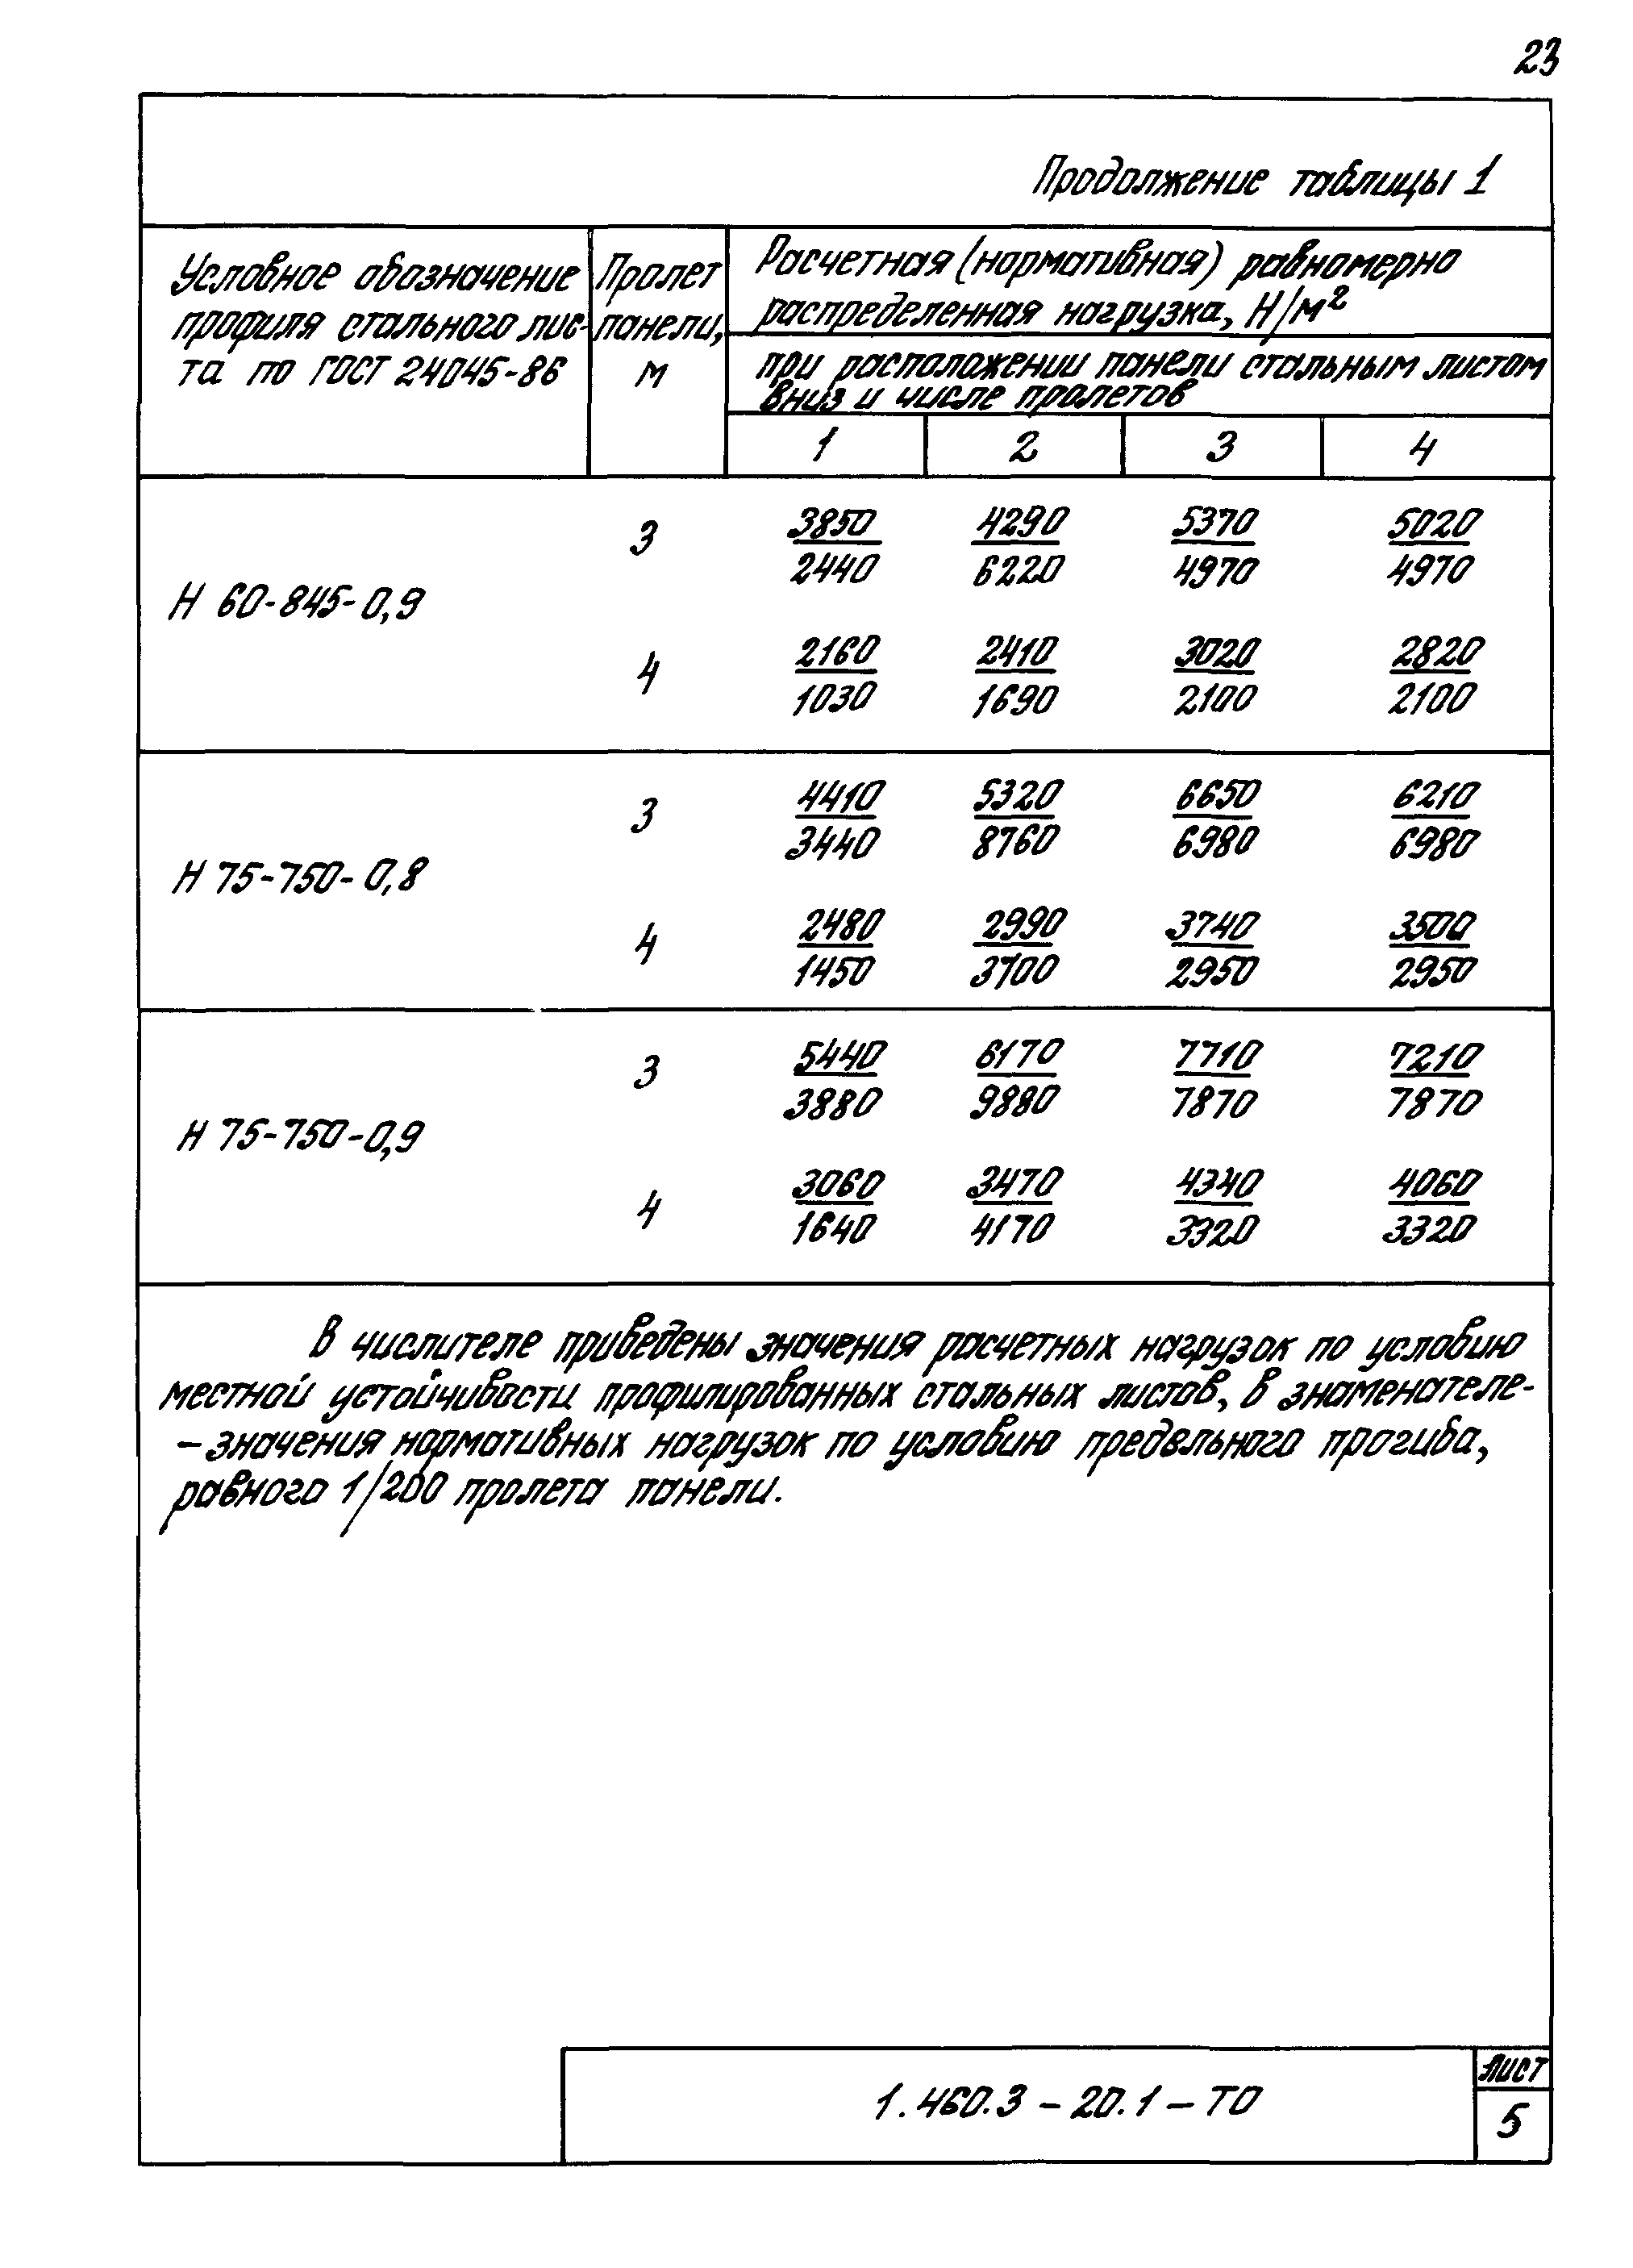 23
Продолжение таблицы 1
Условное обозначение
профиля стального лис-
та по ГОСТ 24045-86
Пролет
панели,
м
Расчетная (нормативная) равномерно
распределенная нагрузка, Н/м²
при расположении панели стальным листом
вниз и числе пролетов
1 2 3 4
3 3850 4290 5370 5020
2440 6220 4970 4970
Н 60-845-0,9
4 2160 2410 3020 2820
1030 1690 2100 2100
3 4410 5320 6650 6210
3440 8760 6980 6980
Н 75-750-0,8
4 2480 2990 3740 3500
1450 3700 2950 2950
3 5440 6170 7710 7210
3880 9880 7870 7870
Н 75-750-0,9
4 3060 3470 4340 4060
1640 4170 3320 3320
В числителе приведены значения расчетных нагрузок по условию
местной устойчивости профилированных стальных листов, в знаменателе-
- значения нормативных нагрузок по условию предельного прогиба,
равного 1/200 пролета панели.
1.460.3-20.1-ТО
лист
5